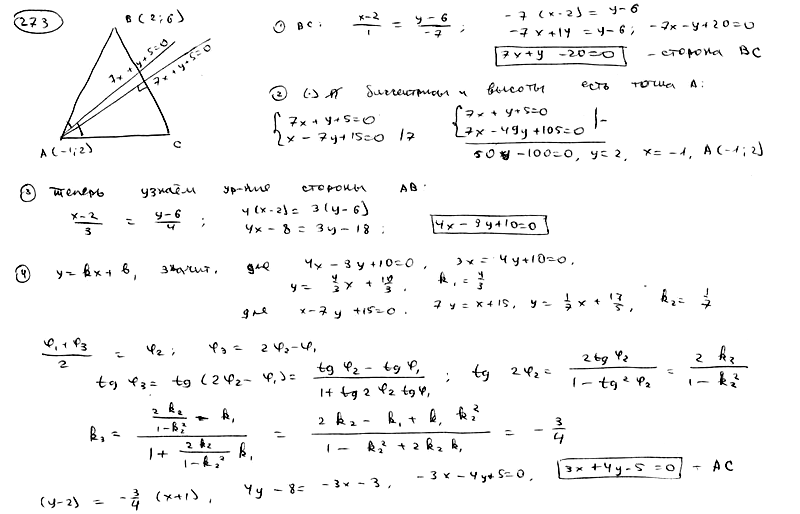 273
B (2; 6)
7x + y + 5 = 0
7x + y + 5 = 0
A (-1; 2)
C
① BC: (x-2)/1 = (y-6)/-7 ; -7 (x-2) = y-6
-7x + 14 = y-6 ; -7x - y + 20 = 0
7x + y - 20 = 0 - сторона BC
② (·) биссектрисы и высоты есть точка A:
{ 7x + y + 5 = 0
{ x - 7y + 15 = 0 /7
{ 7x + y + 5 = 0
{ 7x - 49y + 105 = 0 | -
50y - 100 = 0, y = 2, x = -1, A (-1; 2)
③ теперь узнаём ур-ние стороны AB:
(x-2)/3 = (y-6)/4 ; 4(x-2) = 3(y-6)
4x - 8 = 3y - 18 ; 4x - 3y + 10 = 0
④ y = kx + b, значит, для 4x - 3y + 10 = 0, 3x = 4y + 10 = 0,
y = 4/3 x + 10/3, k₁ = 4/3
для x - 7y + 15 = 0. 7y = x + 15, y = 1/7 x + 15/5, k₂ = 1/7
(φ₁ + φ₃)/2 = φ₂ ; φ₃ = 2φ₂ - φ₁
tg φ₃ = tg (2φ₂ - φ₁) = (tg φ₂ - tg φ₁)/(1 + tg 2φ₂ tg φ₁) ; tg 2φ₂ = (2 tg φ₂)/(1 - tg² φ₂) = (2 k₂)/(1 - k₂²)
k₃ = (2k₂/(1-k₂²) - k₁)/(1 + 2k₂/(1-k₂²) k₁) = (2k₂ - k₁ + k₁ k₂²)/(1 - k₂² + 2k₂ k₁) = -3/4
(y-2) = -3/4 (x+1), 4y - 8 = -3x - 3, -3x - 4y + 5 = 0, 3x + 4y - 5 = 0 - AC